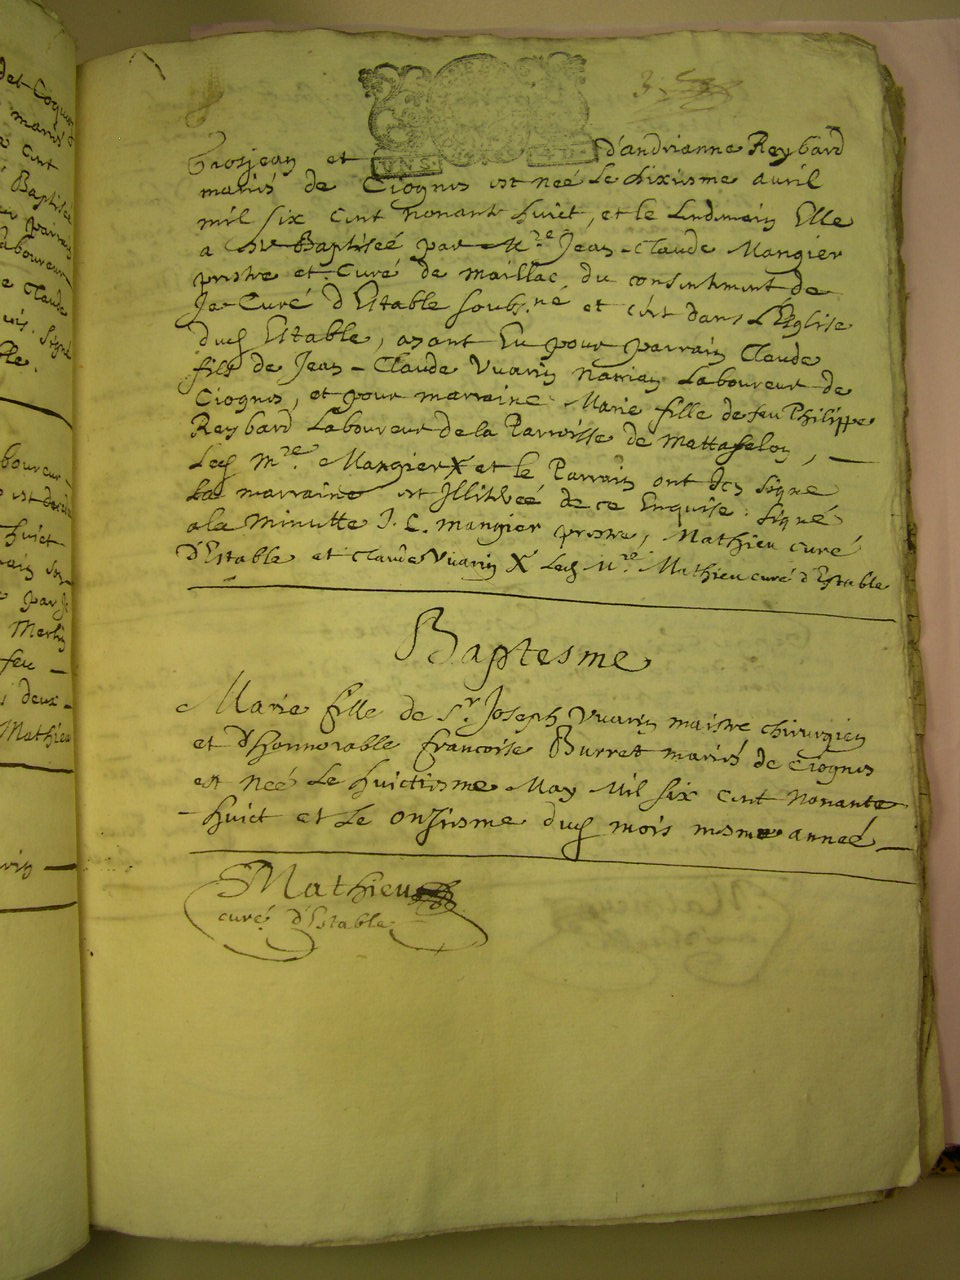 3.
Grosjean et d'andrianne Reybard
UNS
mariés de Ciognes est neé Le dixiesme avril
mil six cent nonante huict, et le Lendemain Elle
a été Baptiseé par Mre Jean-Claude Mangier
prestre et Curé de maillac du consentement de
Je Curé d'Estable soubs.né et c'est dans L'Eglise
dud Estable, ayant Eu pour parrain Claude
fils de Jean-Claude Vuarin Laboureur de
Ciognes, et pour marraine Marie fille de feu Philippe
Reybard Laboureur de la Parroisse de Mattafelon,
Led Mre Mangier X et le Parrain ont Icy signé
La marraine est Illitereé de ce Enquise. Signé
a la Minutte J. C. Mangier prestre, Mathieu curé
d'Estable et Claude Vuarin X Led Mre Mathieu curé d'Estable
Baptesme
Marie fille de Sr Joseph Vuarin maistre chirurgien
et d'Honnorable francoise Burret mariés de Ciognes
est Neé Le huictiesme May Mil six cent Nonante
huict et Le onziesme dud mois mesme anneé
Mathieu
curé d'Estable